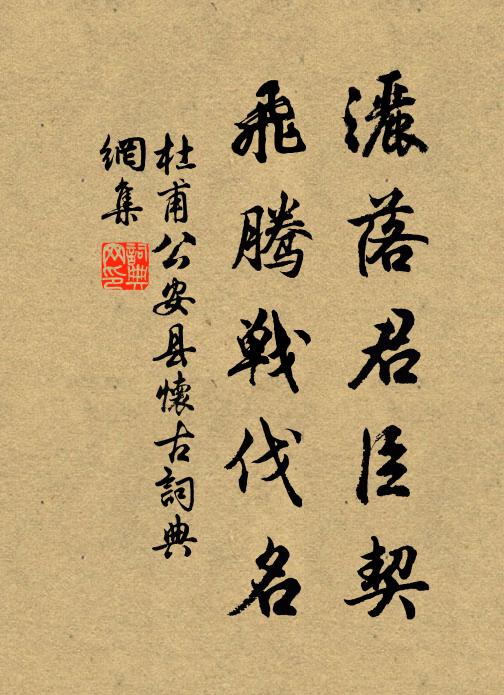 灑落君臣契
飛騰戰伐名
杜甫公安县懷古詞典
網集
詞典
网印